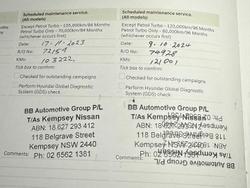 Scheduled maintenance service.
(All models)
Except Petrol Turbo - 105,000km/84 Months
Petrol Turbo Only - 70,000km/84 Months
(whichever occurs first)
Date: 17-11-2023
R/O No: 72159
KMs: 103222
Tick box to confirm:
Checked for outstanding campaigns
Perform Hyundai Global Diagnostic System (GDS) check
BB Automotive Group P/L
T/As Kempsey Nissan
ABN: 18 627 293 412
118 Belgrave Street
Kempsey NSW 2440
Comments: Ph: 02 6562 1381
Scheduled maintenance service.
(All models)
Except Petrol Turbo - 120,000km/96 Months
(whichever occurs first)
Date: 9-10-2024
R/O No: 74928
KMs: 121001
Tick box to confirm:
Checked for outstanding campaigns
Perform Hyundai Global Diagnostic System (GDS) check
BB Automotive Group P/L
T/As Kempsey Nissan
ABN: 18
118 Belgrave Street
Kempsey NSW 2440
Comments: Ph: 02 6562 1381